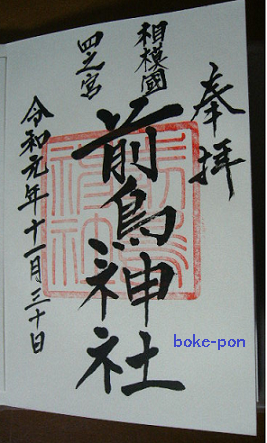 奉拝
相模國
四之宮
前鳥神社
令和元年十一月三十日
boke-pon